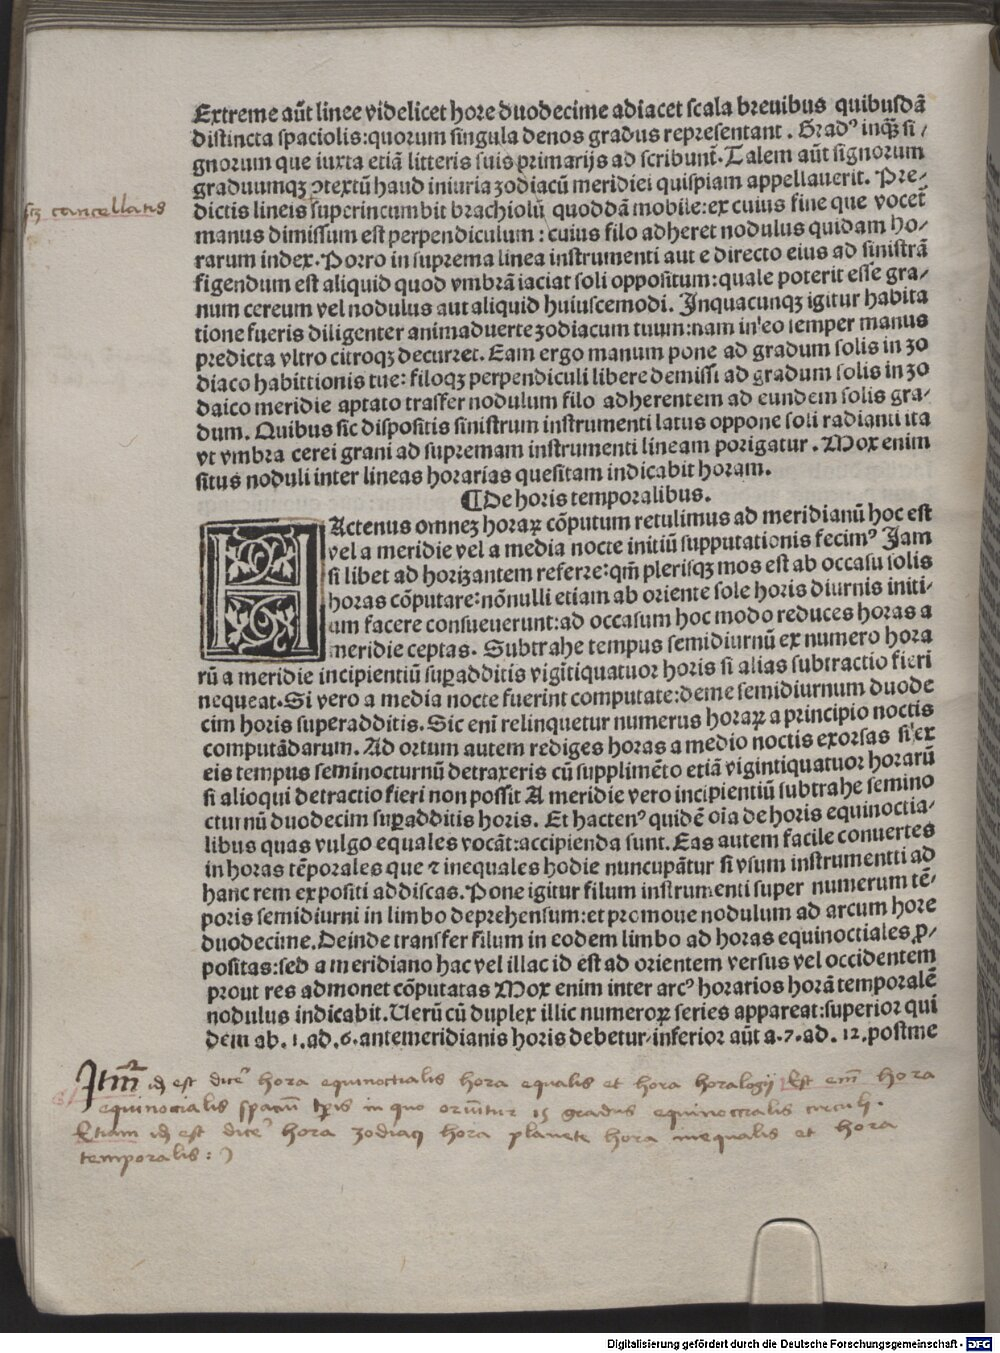 Extreme aūt linee videlicet hore duodecime adiacet scala breuibus quibusdā
distincta spaciolis:quorum singula denos gradus representant. Grad⁹ inqꝫ si/
gnorum que iuxta etiā litteris suis primarijs ad scribunt̄. Talem aūt signorum
graduumqꝫ ꝯtextū haud iniuria zodiacū meridiei quispiam appellauerit. Pre/
sꝫ cancellatis
dictis lineis superincumbit brachiolū quoddā mobile:ex cuius fine que vocet̄
manus dimissum est perpendiculum : cuius filo adheret nodulus quidam ho/
rarum index. Porro in suprema linea instrumenti aut e directo eius ad sinistrā
figendum est aliquid quod vmbrā iaciat soli oppositum:quale poterit esse gra/
num cereum vel nodulus aut aliquid huiuscemodi. Inquacunqꝫ igitur habita
tione fueris diligenter animaduerte zodiacum tuum:nam in eo semper manus
predicta vltro citroqꝫ decurret. Eam ergo manum pone ad gradum solis in zo
diaco habittionis tue: filoqꝫ perpendiculi libere demissi ad gradum solis in zo
daico meridie aptato trasfer nodulum filo adherentem ad eundem solis gra/
dum. Quibus sic dispositis sinistrum instrumenti latus oppone soli radianti ita
vt vmbra cerei grani ad supremam instrumenti lineam porigatur. Mox enim
situs noduli inter lineas horarias quesitam indicabit horam.
¶De horis temporalibus.
HActenus omneꝫ horaꝝ cōputum retulimus ad meridianū hoc est
vel a meridie vel a media nocte initiū supputationis fecim⁹ Jam
si libet ad horizantem referre:qm̄ plerisqꝫ mos est ab occasu solis
horas cōputare:nōnulli etiam ab oriente sole horis diurnis initi-
um facere consueuerunt:ad occasum hoc modo reduces horas a
meridie ceptas. Subtrahe tempus semidiurnū ex numero hora
rū a meridie incipientiū suꝑadditis vigītiquatuor horis si alias subtractio fieri
nequeat. Si vero a media nocte fuerint computate:deme semidiurnum duode
cim horis superadditis. Sic enī relinquetur numerus horaꝝ a principio noctis
computādarum. Ad ortum autem rediges horas a medio noctis exorsas si ex
eis tempus seminocturnū detraxeris cū supplimēto etiā vigintiquatuor horarū
si alioqui detractio fieri non possit A meridie vero incipientiū subtrahe semino
cturnū duodecim suꝑadditis horis. Et hacten⁹ quidē oīa de horis equinoctia/
libus quas vulgo equales vocāt:accipienda sunt. Eas autem facile conuertes
in horas tēporales que ⁊ inequales hodie nuncupātur si vsum instrumentti ad
hanc rem expositi addiscas. Pone igitur filum instrumenti super numerum tē/
poris semidiurni in limbo deprehensum:et promoue nodulum ad arcum hore
duodecime. Deinde transfer filum in eodem limbo ad horas equinoctiales ꝓ/
positas:sed a meridiano hac vel illac id est ad orientem versus vel occidentem
prout res admonet cōputatas Mox enim inter arc⁹ horarios horā temporalē
nodulus indicabit. Uerū cū duplex illic numeroꝝ series appareat:superior qui
dem ab. 1. ad. 6. antemeridianis horis debetur/inferior aūt a. 7. ad. 12. postme
Itm̄ idē est dice⁾ hora equinoctialis hora equalis et hora horalogij Est em̄ hora
equinoctialis spaciū tꝑis in quo oriuntur 15 gradus equinoctialis circuli.
Etiam idē est dice⁾ hora zodiaci hora planete hora inequalis et hora
temporalis : )
Digitalisierung gefördert durch die Deutsche Forschungsgemeinschaft - DFG